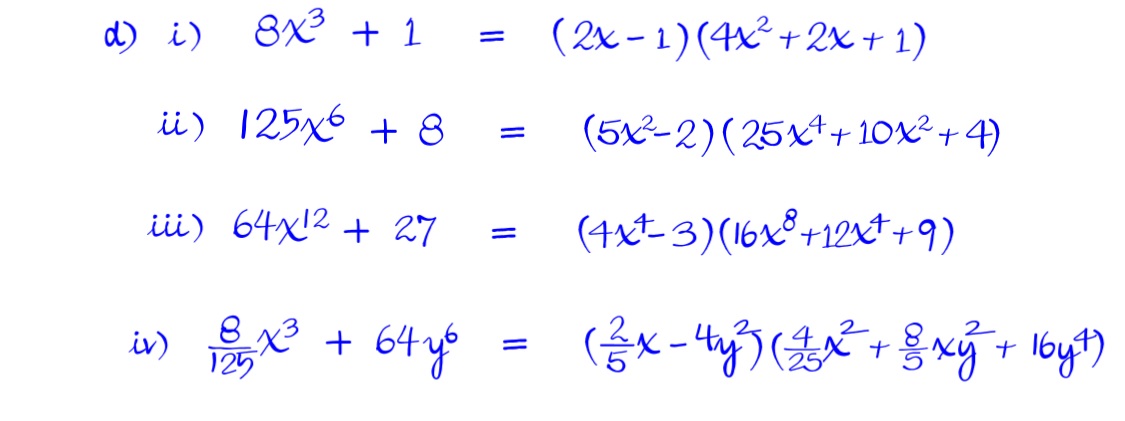 d) i) 8x³ + 1 = (2x - 1)(4x² + 2x + 1)
ii) 125x⁶ + 8 = (5x² - 2)(25x⁴ + 10x² + 4)
iii) 64x¹² + 27 = (4x⁴ - 3)(16x⁸ + 12x⁴ + 9)
iv) 8/125 x³ + 64y⁶ = (2/5 x - 4y²)(4/25 x² + 8/5 xy² + 16y⁴)